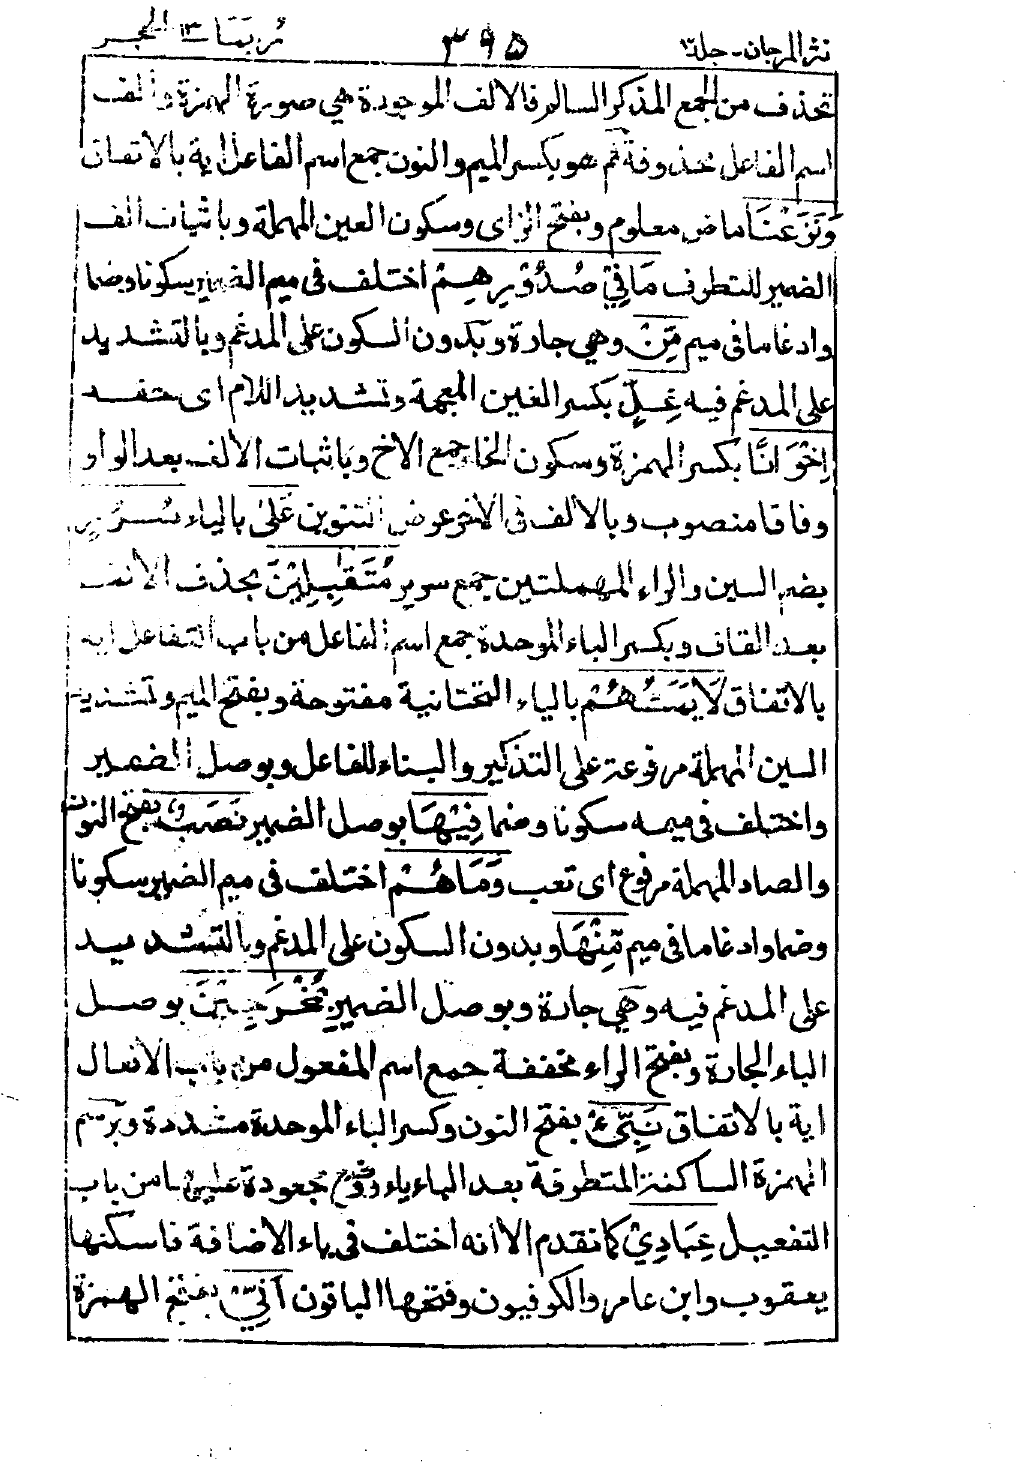 نثر المرجان - جلد ٣
٣٩٥
ربما ١٣ الحجر
تحذف من الجمع المذكر السالم فالالف الموجودة هي صورة الهمزة والف
اسم الفاعل محذوفة ثم هو بكسر الميم والنون جمع اسم الفاعل اية بالاتفاق
وَنَزَعْنَا ماض معلوم وبفتح الزاى وسكون العين المهملة وباثبات الف
الضمير للتطرف مَا فِيْ صُدُوْرِهِمْ اختلف فى ميم الضمير سكونا وضما
وادغاما فى ميم مِّنْ وهي جارة وبدون السكون على المدغم وبالتشديد
على المدغم فيه غِلٍّ بكسر الغين المعجمة وتشديد اللام اى حقد
اِخْوَانًا بكسر الهمزة وسكون الخا جمع الاخ وباثبات الالف بعد الواو
وفاقا منصوب وبالالف فى الاخر عوض التنوين عَلٰى بالياء سُرُرٍ
بضم السين والراء المهملتين جمع سرير مُتَقٰبِلِيْنَ بحذف الالف
بعد القاف وبكسر الباء الموحدة جمع اسم الفاعل من باب التفاعل اية
بالاتفاق لَا يَمَسُّهُمْ بالياء التحتانية مفتوحة وبفتح الميم وتشديد
السين المهملة مرفوعة على التذكير والبناء للفاعل وبوصل الضمير
واختلف فى ميمه سكونا وضما فِيْهَا بوصل الضمير نَصَبٌ بفتح النون
والصاد المهملة مرفوع اى تعب وَمَا هُمْ اختلف فى ميم الضمير سكونا
وضما وادغاما فى ميم مِّنْهَا وبدون السكون على المدغم وبالتشديد
على المدغم فيه وهي جارة وبوصل الضمير بِمُخْرَجِيْنَ بوصل
الباء الجارة وبفتح الراء مخففة جمع اسم المفعول من باب الافعال
اية بالاتفاق نَبِّئْ بفتح النون وكسر الباء الموحدة مشددة وبرسم
الهمزة الساكنة المتطرفة بعد الباء ياء ووضع جعودة عليها من باب
التفعيل عِبَادِيْ كما تقدم الا انه اختلف فى ياء الاضافة فاسكنها
يعقوب وابن عامر والكوفيون وفتحها الباقون اَنِّيْ بفتح الهمزة